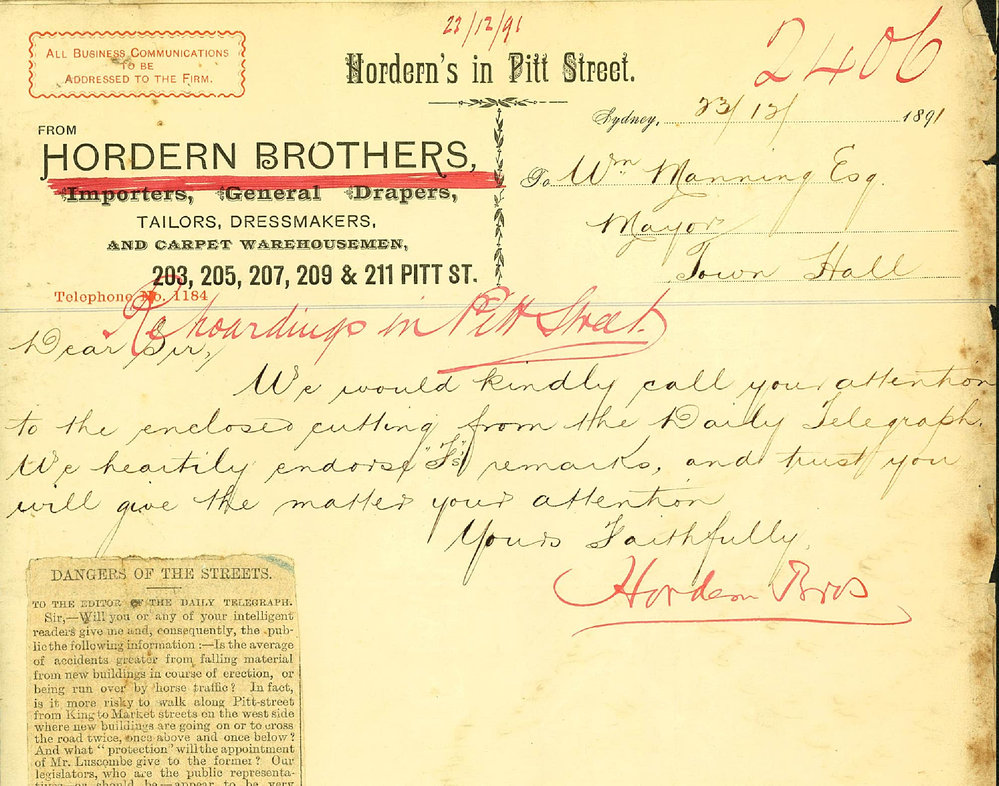 23/12/91
2406
ALL BUSINESS COMMUNICATIONS
TO BE
ADDRESSED TO THE FIRM.
Hordern's in Pitt Street.
Sydney, 23/12/ 1891
FROM
HORDERN BROTHERS,
Importers, General Drapers,
TAILORS, DRESSMAKERS,
AND CARPET WAREHOUSEMEN,
203, 205, 207, 209 & 211 PITT ST.
Telephone No. 1184
To Wm Manning Esq.
Mayor
Town Hall
Re hoardings in Pitt Street.
Dear Sir,
We would kindly call your attention
to the enclosed cutting from the Daily Telegraph.
We heartily endorse "F's" remarks, and trust you
will give the matter your attention
Yours Faithfully,
Hordern Bros
DANGERS OF THE STREETS.
TO THE EDITOR OF THE DAILY TELEGRAPH.
Sir,—Will you or any of your intelligent
readers give me and, consequently, the pub-
lic the following information :—Is the average
of accidents greater from falling material
from new buildings in course of erection, or
being run over by horse traffic? In fact,
is it more risky to walk along Pitt-street
from King to Market streets on the west side
where new buildings are going on or to cross
the road twice, once above and once below?
And what "protection" will the appointment
of Mr. Luscombe give to the former? Our
legislators, who are the public representa-
tives or should be—appear to be very